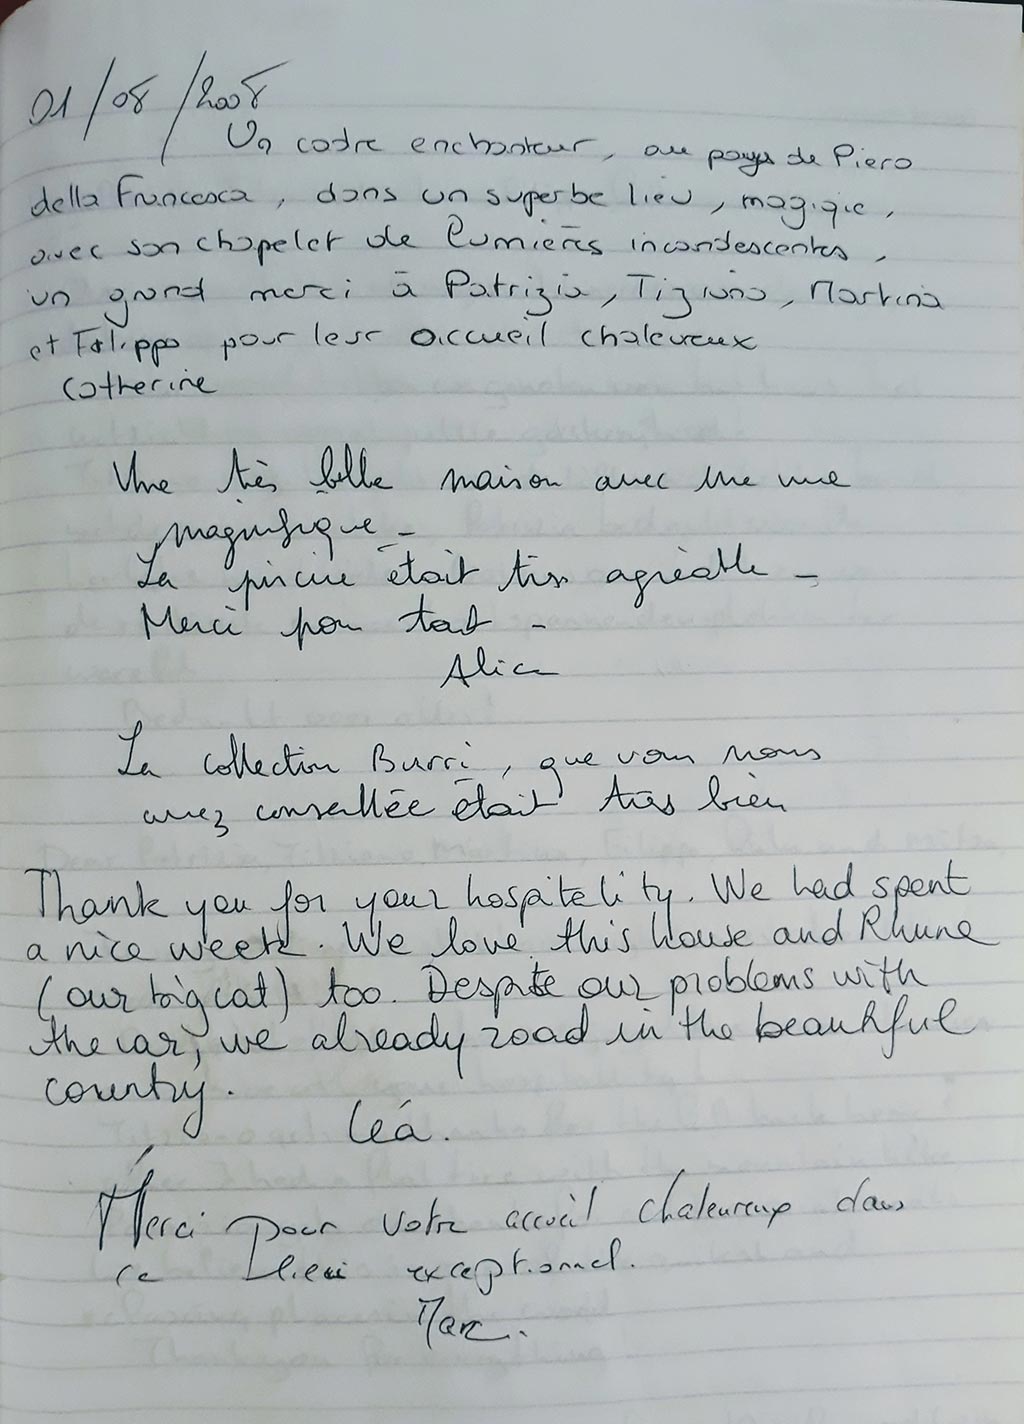 01/08/2008
Un cadre enchanteur, au pays de Piero
della Francesca, dans un superbe lieu, magique,
avec son chapelet de lumières incandescentes,
un grand merci à Patrizia, Tiziano, Martina
et Filippo pour leur accueil chaleureux
Catherine
Une très belle maison avec une vue
magnifique -
La piscine était très agréable -
Merci pour tout -
Alice
La collection Burri, que vous nous
avez conseillée était très bien
Thank you for your hospitality. We had spent
a nice week. We love this house and Rhune
(our big cat) too. Despite our problems with
the car, we already road in the beautiful
country.
Léa.
Merci pour votre accueil chaleureux dans
ce lieu exceptionnel.
Marc.